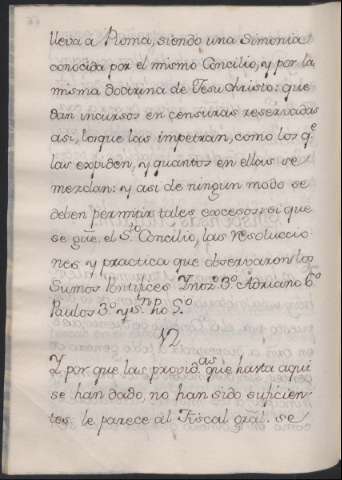 lleva a Roma, siendo una Simonia
conocida por el mismo Concilio, y por la
misma doctrina de Jesu christo: que
dan incursos en censuras reservadas
asi, los que las impetran, como los q.e
las expiden, y quantos en ellas se
mezclan: y asi de ningun modo se
deben permitir tales excesos: si que
se g.ue, el S.to Concilio, las resoluccio-
nes y practica que observaron los
Sumos Pontifces Ynoz.o 3.o Adriano 6.o
Paulos 3.o y S.n Pio 5.o
12
Y por que las provid.as que hasta aqui
se han dado, no han sido suficien-
tes, le parece al Fiscal gral. se